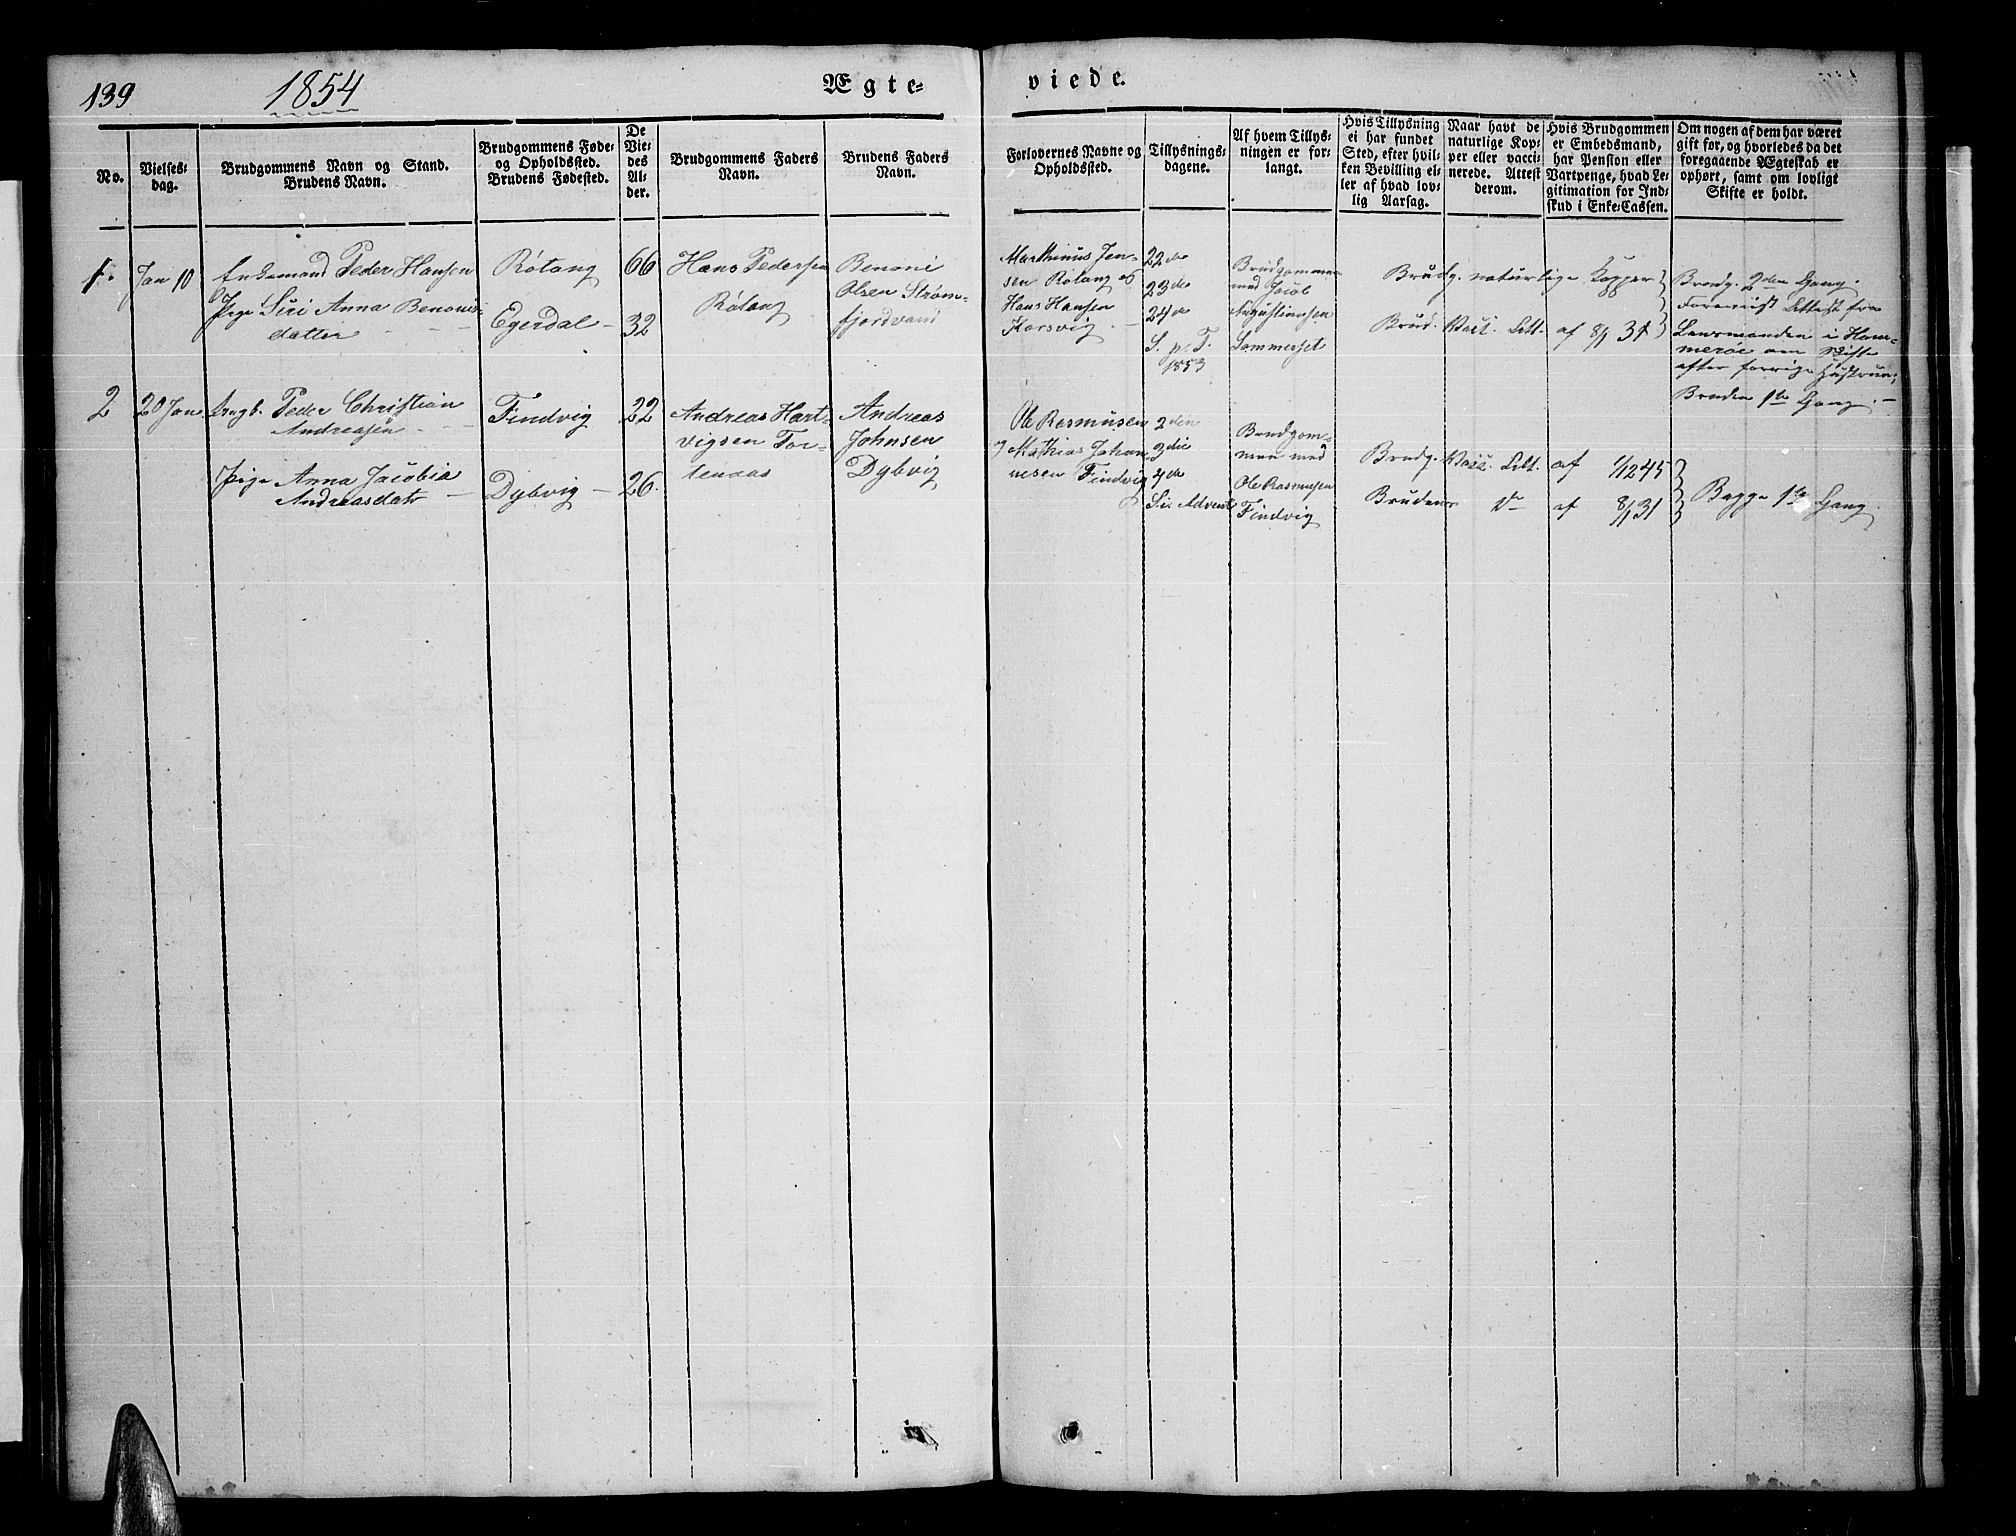 139 1854 Ægte- viede.
No.
Vielses-
dag.
Brudgommens Navn og Stand.
Brudens Navn.
Brudgommens Føde-
og Opholdssted.
Brudens Fødested.
De
Vie-
des
Al-
der.
Brudgommens Faders
Navn.
Brudens Faders
Navn.
Forlovernes Navne og
Opholdssted.
Tillysnings-
dagene.
Af hvem Tillys-
ningen er for-
langt.
Hvis Tillysning
ei har fundet
Sted, efter hvil-
ken Bevilling el-
ler af hvad lov-
lig Aarsag.
Naar havt de
naturlige Kop-
per eller vacci-
nerede. Attest
derom.
Hvis Brudgommen
er Embedsmand,
har Pension eller
Vartpenge, hvad Le-
gitimation for Ind-
skud i Enke-Cassen.
Om nogen af dem har været
gift før, og hvorledes da det
foregaaende Ægteskab er
ophørt, samt om lovligt
Skifte er holdt.
1.
Jan 10
Enkemand Peder Hansen
Pige Siri Anna Benonis-
datter
Røtang
Egerdal
66
32
Hans Pedersen
Røtang
Benoni
Olsen Strøm-
fjordvand
Marthinus Jen-
sen Røtang og
Hans Hansen
Korsvig
22de
23de
24de
S. p. T.
1853
Brudgommen
med Jacob
Augustinusen
Sommerset
Brudg. naturlige Kopper
Brud. Vacc. Att. af 8/1 31
Brudg. 2den Gang.
Foreviist Attest fra
Lensmanden i Ham-
merøe om Skifte
efter forrige Hustrue;
Bruden 1ste Gang.
2
20 Jan
Ungk. Peder Christian
Andreasen
Pige Anna Jacobia
Andreasdatr
Findvig
Dybvig
22
26.
Andreas Hart-
vigsen Tor-
tenaas
Andreas
Johnsen
Dybvig
Ole Rasmusen
og Mathias Johan-
nesen Findvig
2den
3die
4de
S. i Advent
Brudgom-
men med
Ole Rasmusen
Findvig
Brudg. Vacc. Att. af 1/12 45
Bruden do af 8/1 31
Begge 1ste Gang.